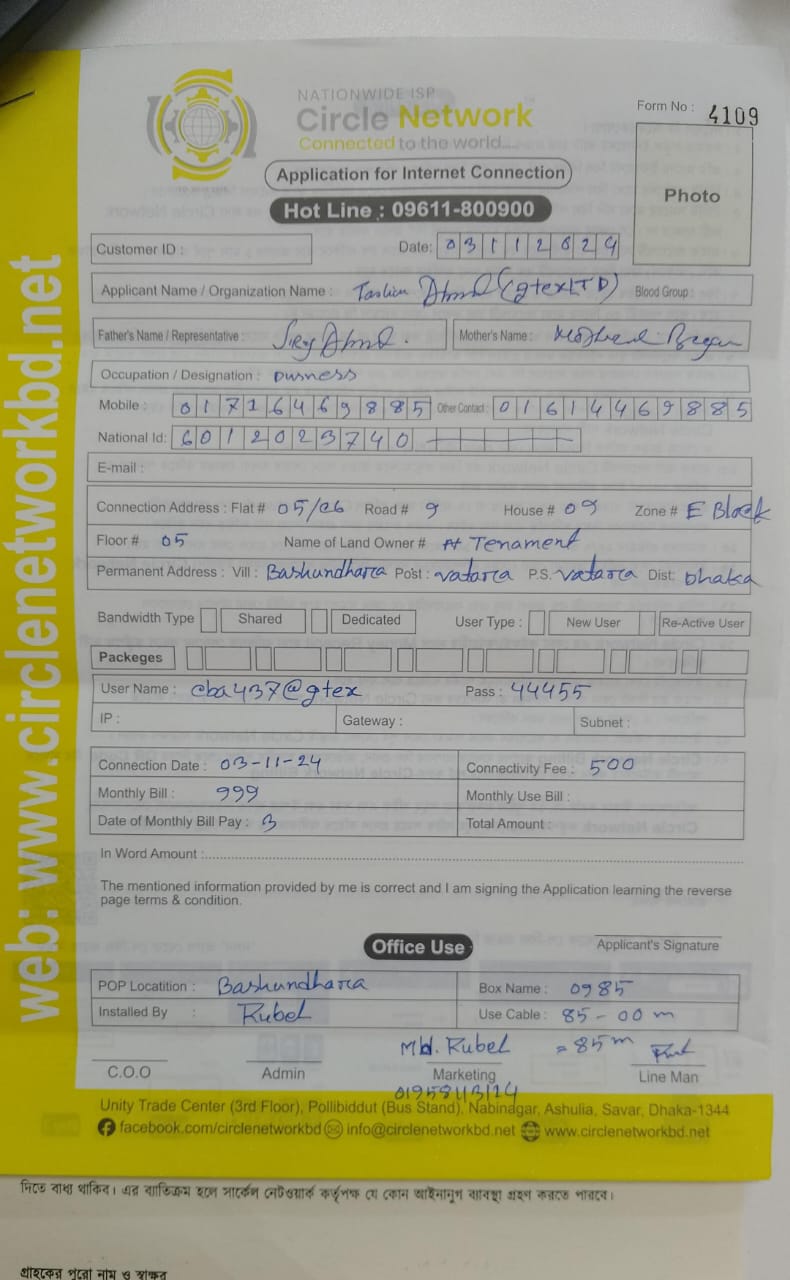 NATIONWIDE ISP
Circle Network
Connected to the world....
Form No : 4109
Application for Internet Connection
Photo
Hot Line : 09611-800900
Customer ID :
Date: 03112024
Applicant Name / Organization Name : (gtex LTD) Blood Group :
Father's Name / Representative : Siraj Ahmed. Mother's Name : Begum
Occupation / Designation : Business
Mobile : 01716469885 Other Contact : 01614469885
National Id: 6012023740
E-mail :
Connection Address : Flat # 05/C6 Road # 9 House # 09 Zone # E Block
Floor # 05 Name of Land Owner # At Tenament
Permanent Address : Vill : Bashundhara Post : vatara P.S. vatara Dist: Dhaka
Bandwidth Type Shared Dedicated User Type : New User Re-Active User
Packeges
User Name : cba437@gtex Pass : 44455
IP : Gateway : Subnet :
Connection Date : 03-11-24 Connectivity Fee : 500
Monthly Bill : 999 Monthly Use Bill :
Date of Monthly Bill Pay : 3 Total Amount :
In Word Amount :
The mentioned information provided by me is correct and I am signing the Application learning the reverse
page terms & condition.
Office Use
Applicant's Signature
POP Locatition : Bashundhara Box Name : 0985
Installed By : Rubel Use Cable : 85-00 m
Md. Rubel = 85 m
C.O.O Admin Marketing Line Man
Unity Trade Center (3rd Floor), Pollibiddut (Bus Stand), Nabinagar, Ashulia, Savar, Dhaka-1344
facebook.com/circlenetworkbd info@circlenetworkbd.net www.circlenetworkbd.net
web: www.circlenetworkbd.net
দিতে বাধ্য থাকিব। এর ব্যতিক্রম হলে সার্কেল নেটওয়ার্ক কর্তৃপক্ষ যে কোন আইনানুগ ব্যবস্থা গ্রহণ করতে পারবে।
গ্রাহকের পুরো নাম ও স্বাক্ষর